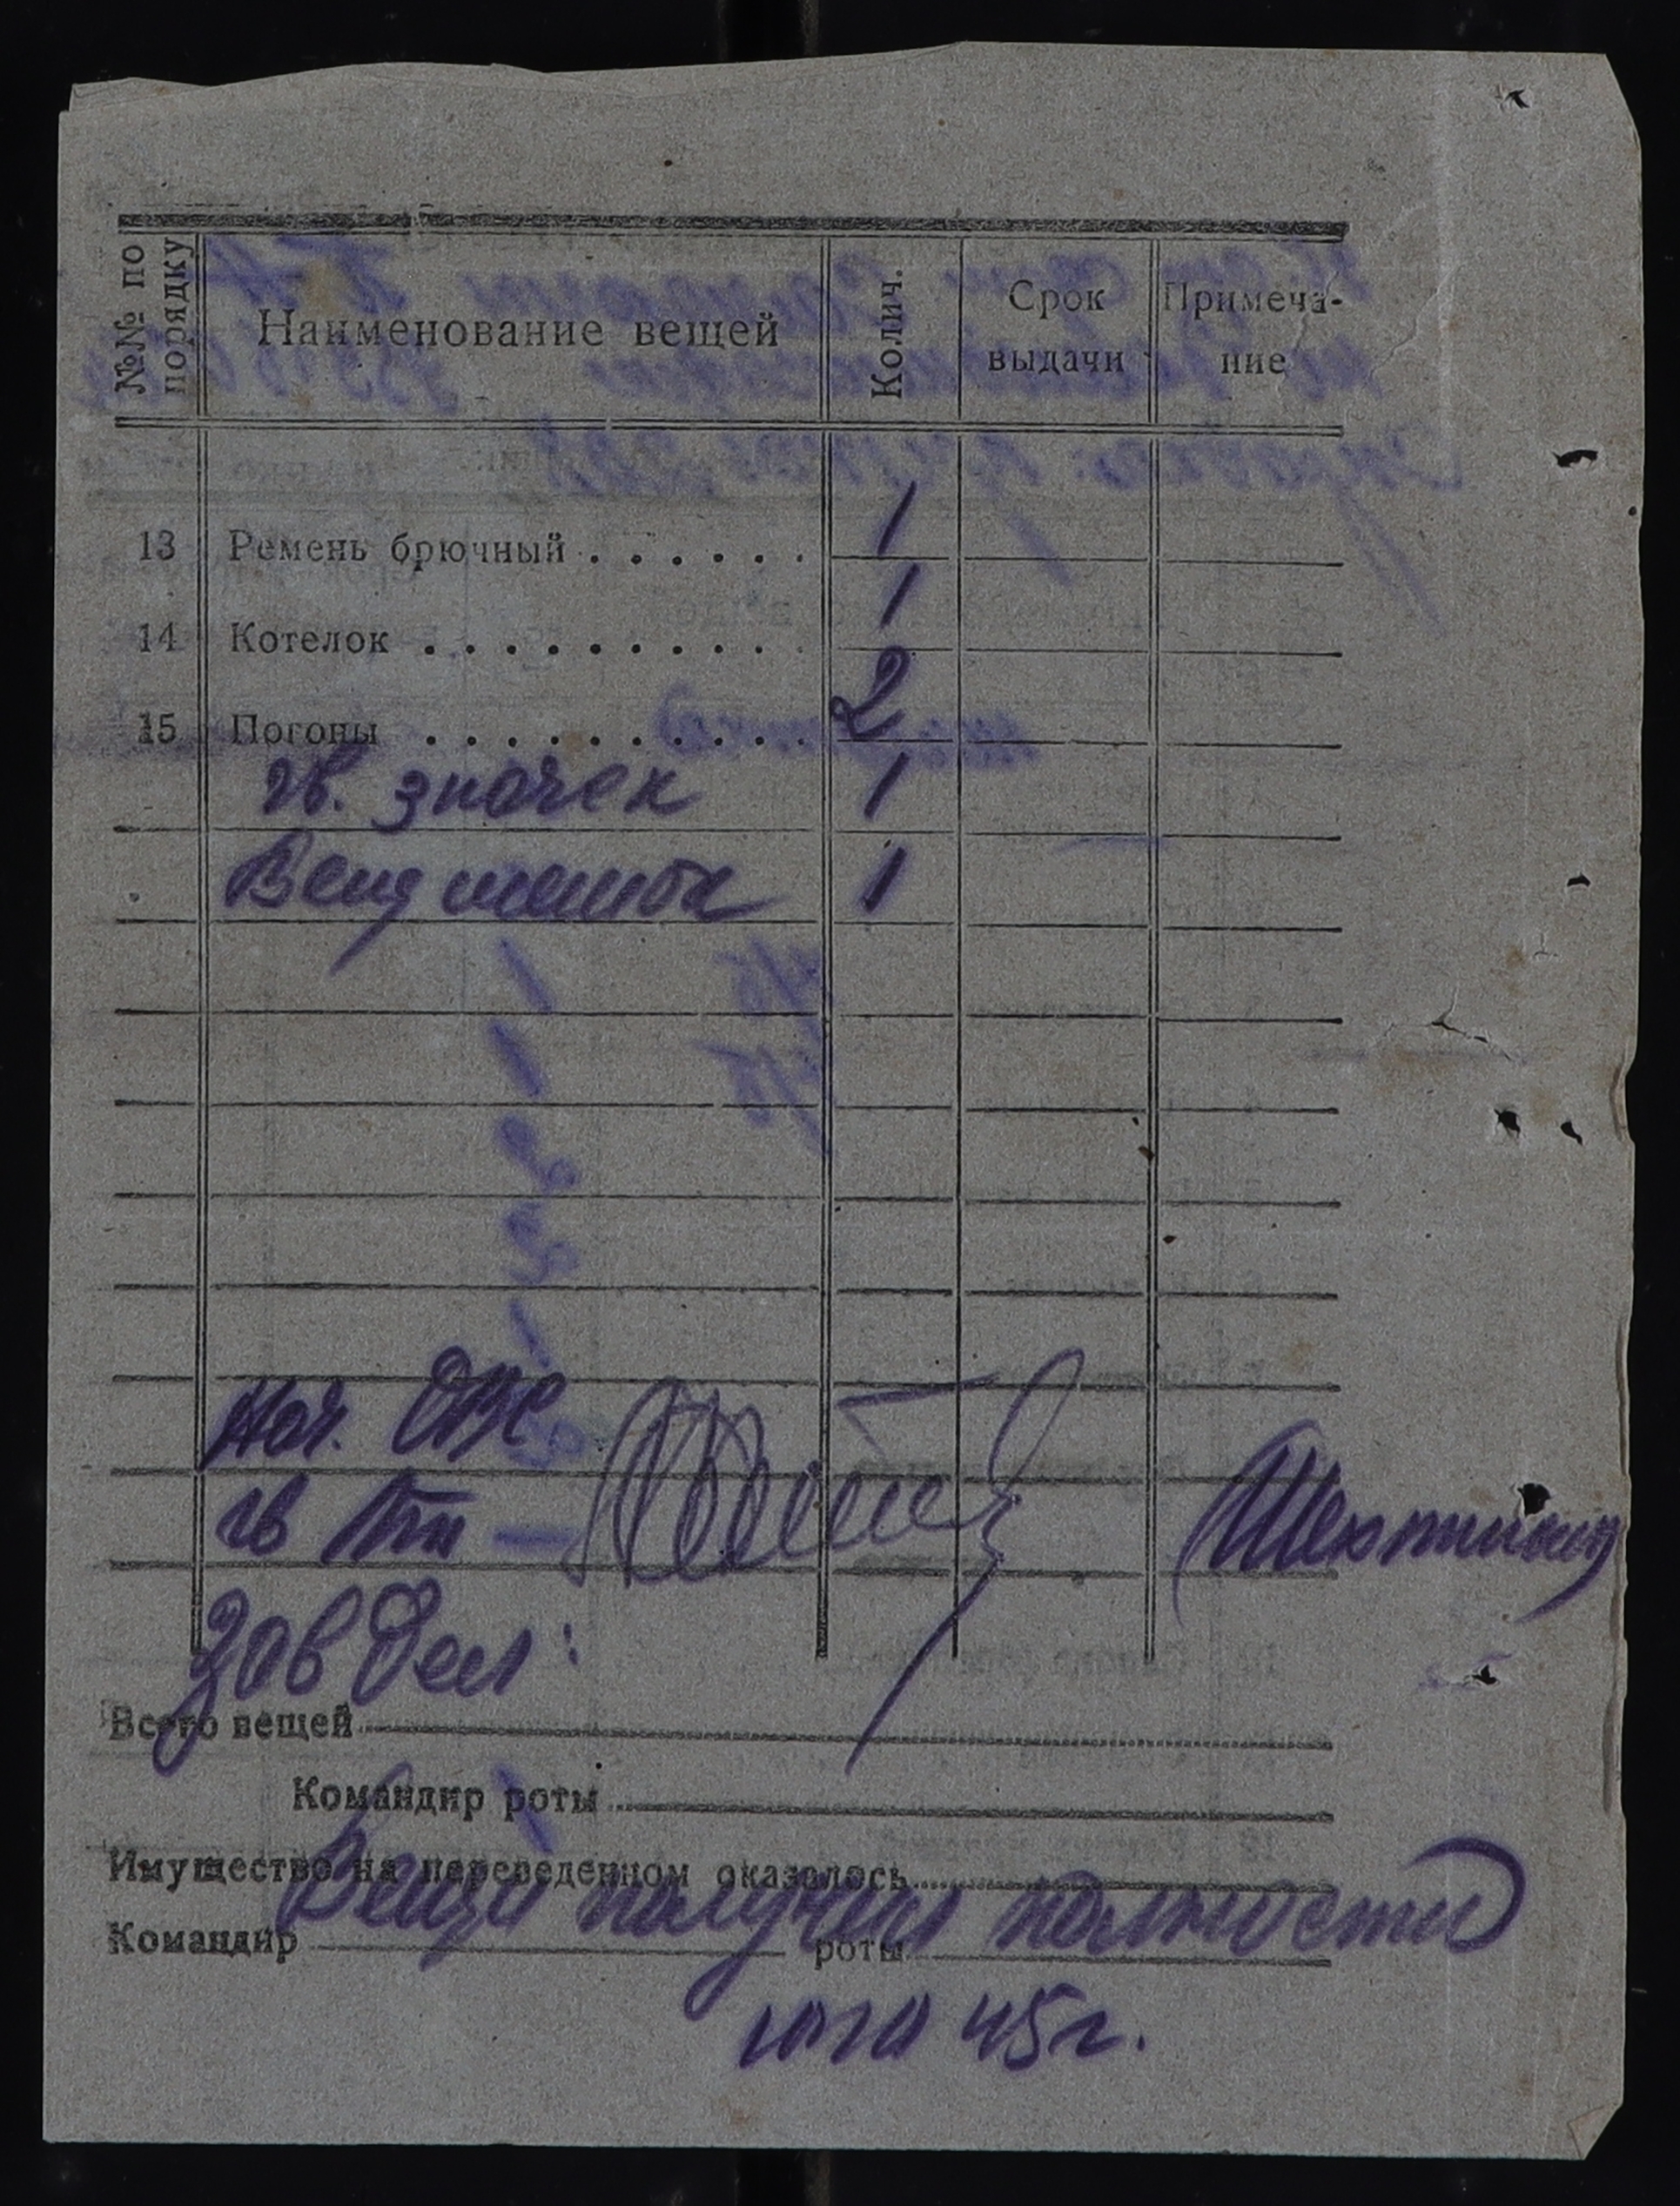 №№ по порядку Наименование вещей Колич. Срок выдачи Примечание
13 Ремень брючный . . . . . . 1
14 Котелок . . . . . . . . . . 1
15 Погоны . . . . . . . . . . 2
гв. значек 1
Вещ мешок 1
Нач. ОВС
гв
Зав Дел:
Всего вещей
Командир роты
Имущество на переведенном оказалось
Вещи получил полностью
Командир роты
июля 45 г.